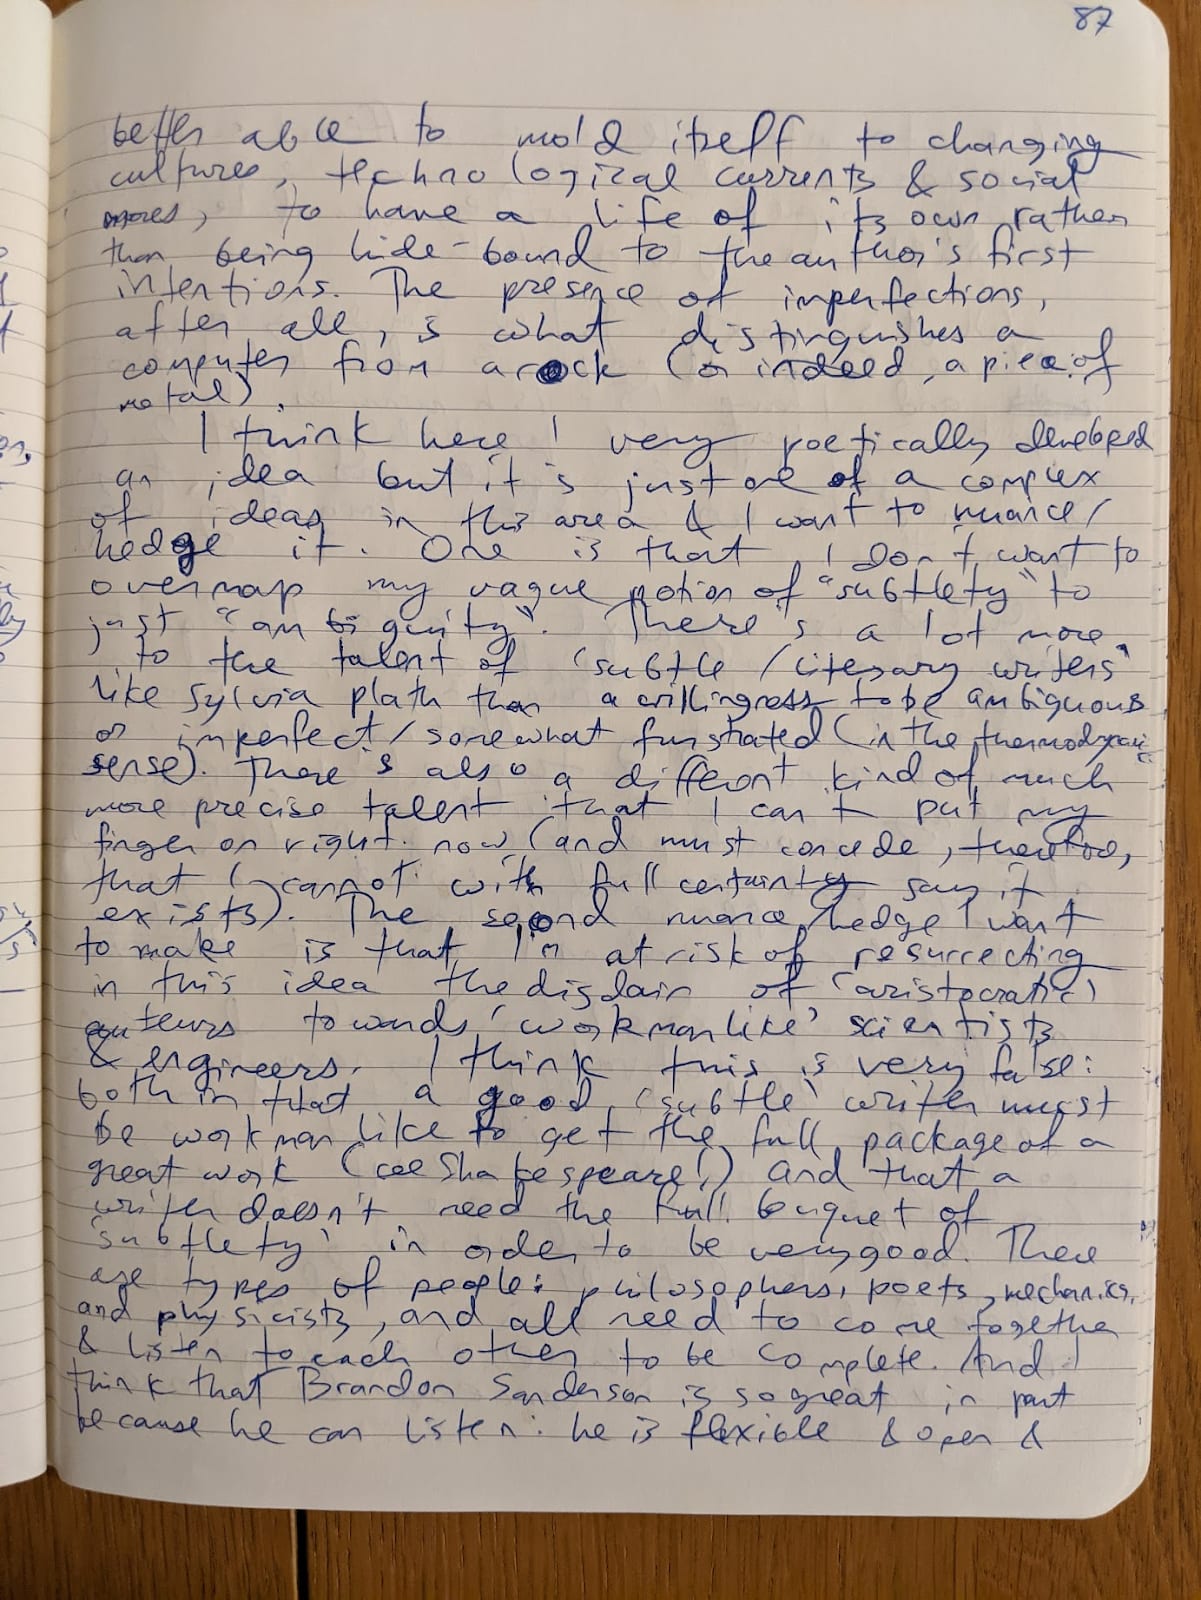 87
better able to mold itself to changing
cultures, technological currents & social
mores, to have a life of its own rather
than being hide-bound to the author's first
intentions. The presence of imperfections,
after all, is what distinguishes a
computer from a rock (or indeed, a piece of
metal).
I think here I very poetically developed
an idea but it's just one of a complex
of ideas in this area & I want to nuance/
hedge it. One is that I don't want to
overmap my vague notion of "subtlety" to
just "ambiguity". There's a lot more
to the talent of 'subtle/literary writers'
like Sylvia plath than a willingness to be ambiguous
or imperfect/somewhat frustrated (in the thermodynamic
sense). There's also a different kind of much
more precise talent that I can't put my
finger on right now (and must concede, therefore,
that I cannot with full certainty say it
exists). The second nuance/hedge I want
to make is that I'm at risk of resurrecting
in this idea the disdain of 'aristocratic'
auteurs towards 'workmanlike' scientists
& engineers. I think this is very false:
both in that a good 'subtle' writer must
be workmanlike to get the full package of a
great work (cee Shakespeare!) and that a
writer doesn't need the full buquet of
'subtlety' in order to be very good. There
are types of people: philosophers, poets, mechanics,
and physicists, and all need to come together
& listen to each other to be complete. And I
think that Brandon Sanderson is so great in part
because he can listen: he is flexible & open &